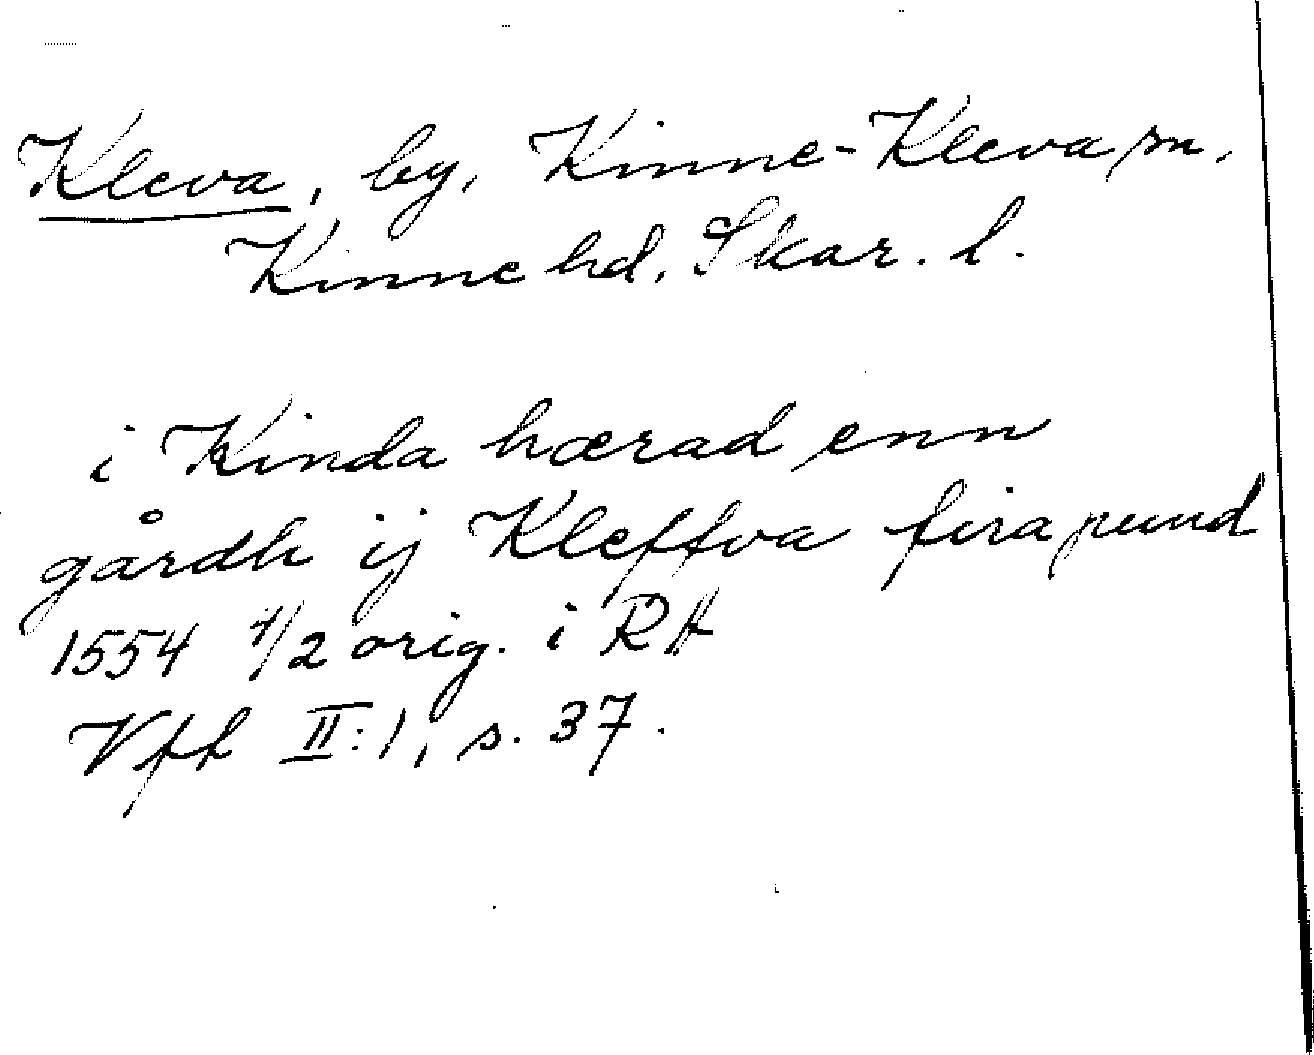 Kleva, by, Kinne-Kleva sn,
Kinne hd, Skar. l.
i Kinda hærad enn
gårdh ij Kleffva fira pund
1554 1/2 orig. i RA
Vfh II:1, s. 37.